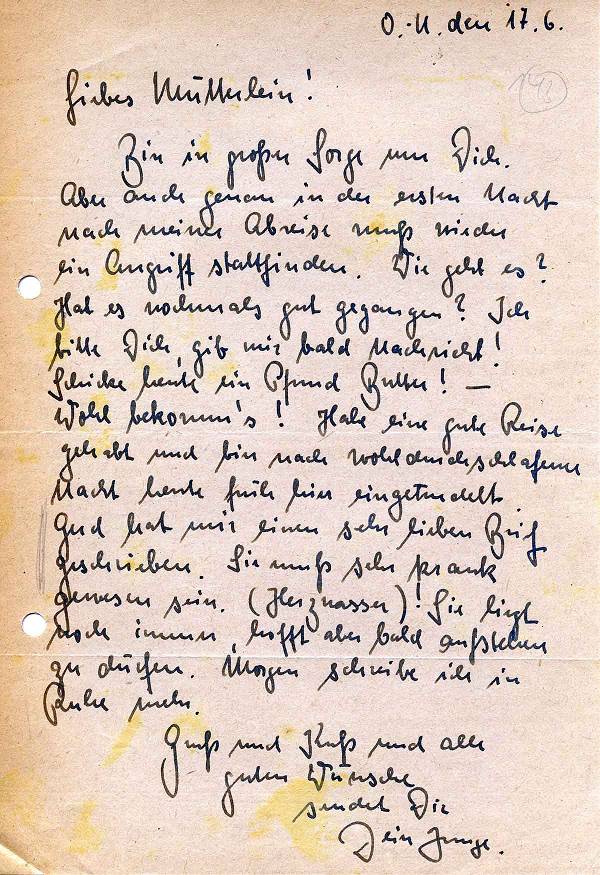 O.-U. den 17.6.
143
Liebes Mütterlein!
Bin in großer Sorge um Dich.
Aber auch genau in der ersten Nacht
nach meiner Abreise muß wieder
ein Angriff stattfinden. Wie geht es?
Hat es nochmals gut gegangen? Ich
bitte Dich, gib mir bald Nachricht!
Schicke heute ein Pfund Butter! —
Wohl bekomm's! Habe eine gute Reise
gehabt und bin nach wohldurchschlafener
Nacht heute früh hier eingetrudelt.
Gud hat mir einen sehr lieben Brief
geschrieben. Sie muß sehr krank
gewesen sein. (Herzwasser)! Sie liegt
noch immer, hofft aber bald aufstehen
zu dürfen. Morgen schreibe ich in
Ruhe mehr.
Gruß und Kuß und alle
guten Wünsche
sendet Dir
Dein Junge.